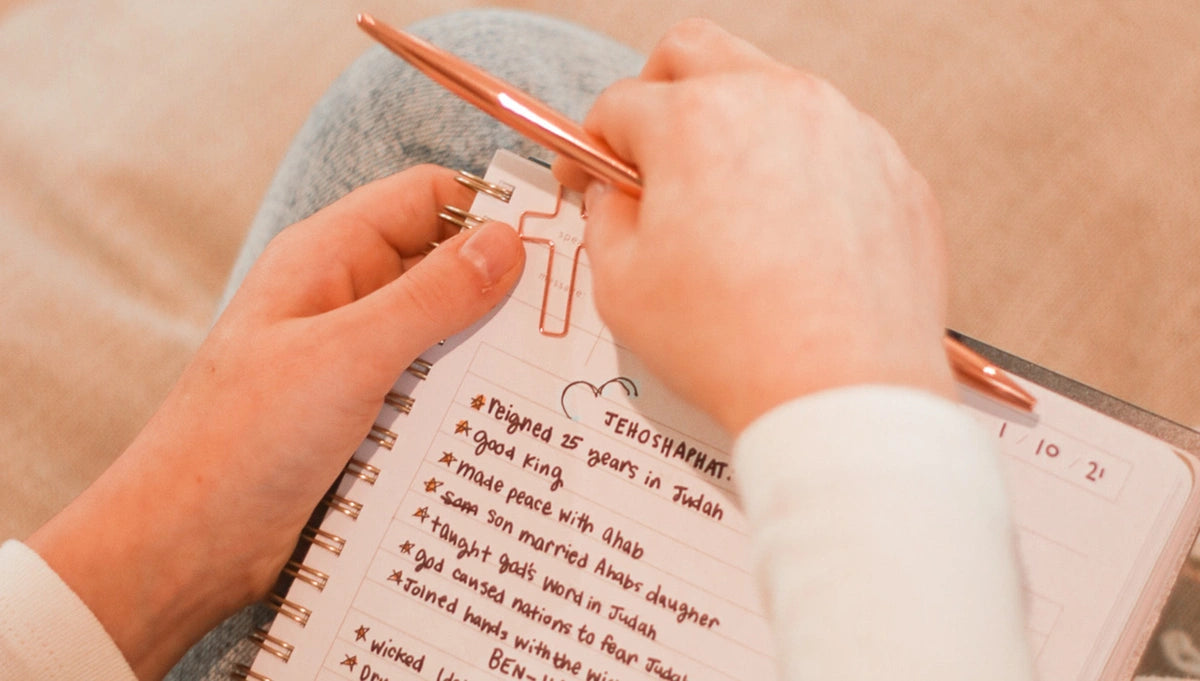 message:
1/10/21
JEHOSHAPHAT:
reigned 25 years in Judah
good King
made peace with Ahab
son married Ahabs daughter
taught god's word in Judah
god caused nations to fear Judah
Joined hands with the
BEN-
wicked